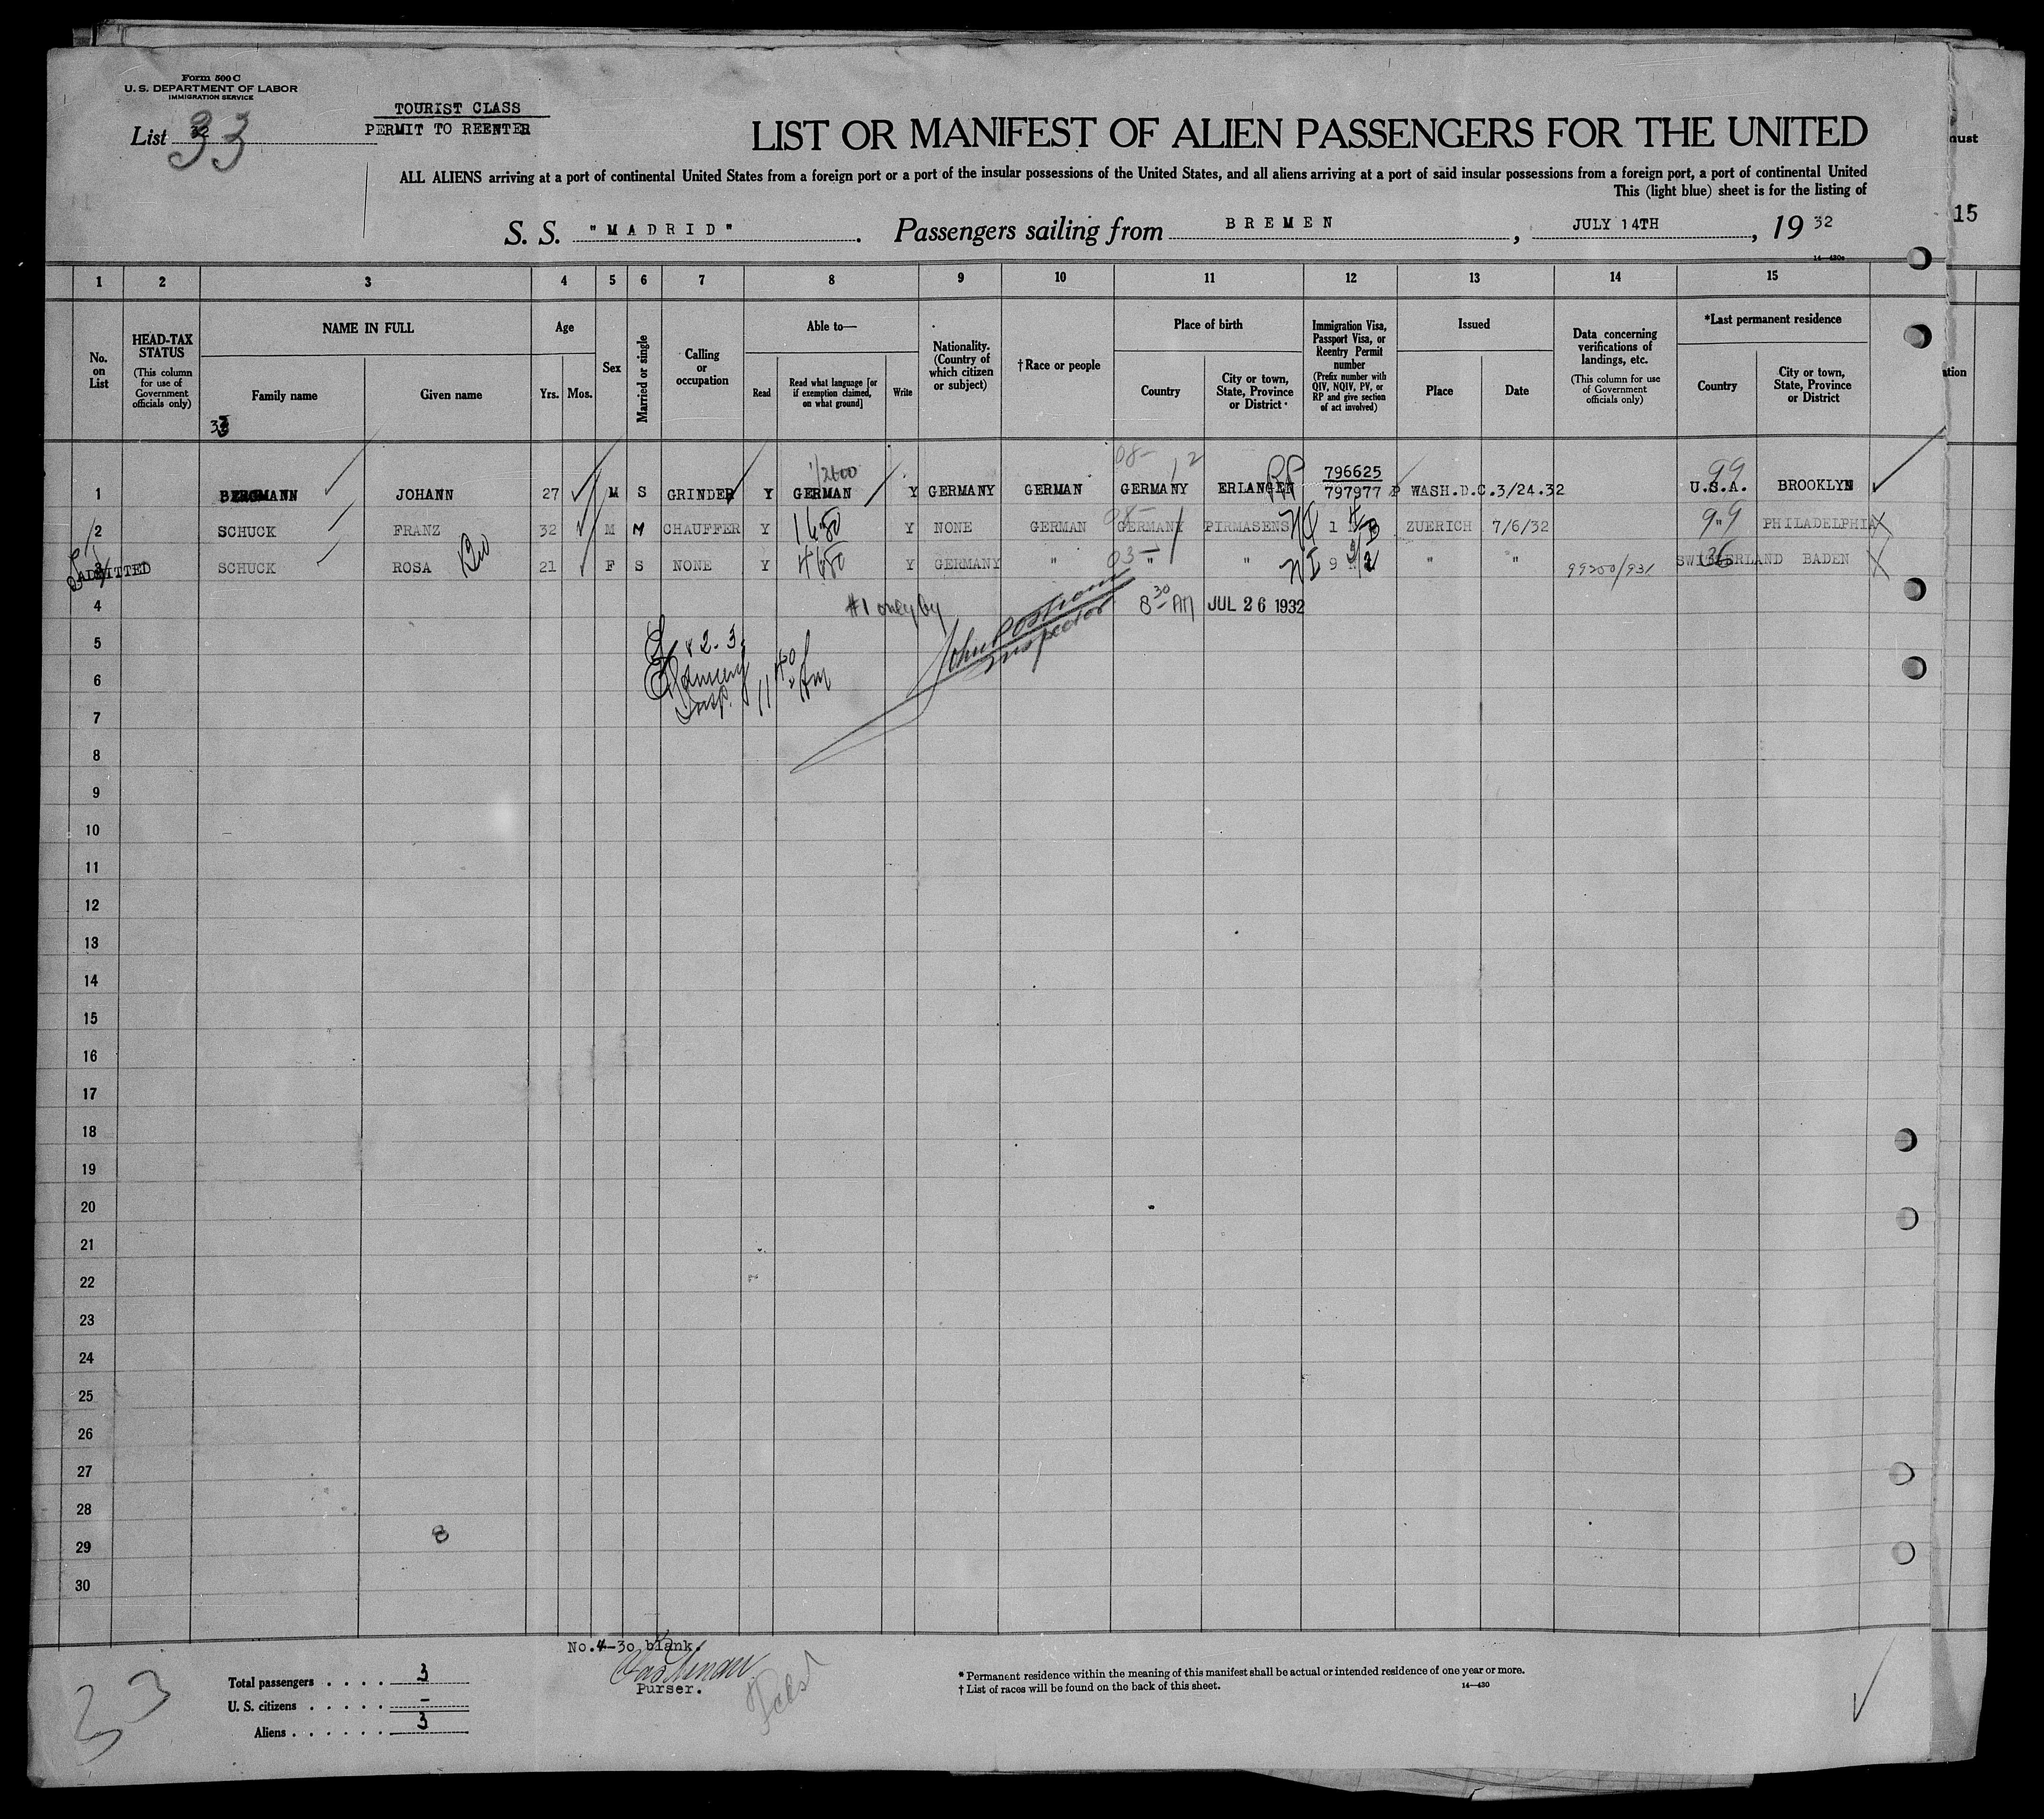 Form 500 C
U. S. DEPARTMENT OF LABOR
IMMIGRATION SERVICE
List 33
TOURIST CLASS
PERMIT TO REENTER
LIST OR MANIFEST OF ALIEN PASSENGERS FOR THE UNITED
ALL ALIENS arriving at a port of continental United States from a foreign port or a port of the insular possessions of the United States, and all aliens arriving at a port of said insular possessions from a foreign port, a port of continental United
This (light blue) sheet is for the listing of
S. S. "MADRID". Passengers sailing from BREMEN, JULY 14TH, 19 32
14—430c
15
1 2 3 4 5 6 7 8 9 10 11 12 13 14 15
No. on List
HEAD-TAX STATUS
(This column for use of Government officials only)
NAME IN FULL
Family name
Given name
Age
Yrs. Mos.
Sex
Married or single
Calling or occupation
Able to—
Read
Read what language [or if exemption claimed, on what ground]
Write
Nationality. (Country of which citizen or subject)
† Race or people
Place of birth
Country
City or town, State, Province or District
Immigration Visa, Passport Visa, or Reentry Permit number
(Prefix number with QIV, NQIV, PV, or RP and give section of act involved)
Issued
Place
Date
Data concerning verifications of landings, etc.
(This column for use of Government officials only)
*Last permanent residence
Country
City or town, State, Province or District
08— 12 RP 796625 99
1 BERGMANN JOHANN 27 M S GRINDER Y GERMAN Y GERMANY GERMAN GERMANY ERLANGEN 797977 P WASH.D.C. 3/24.32 U.S.A. BROOKLYN
2 SCHUCK FRANZ 32 M M CHAUFFER Y Y NONE GERMAN GERMANY PIRMASENS ZUERICH 7/6/32 " PHILADELPHIA
ADMITTED
3 SCHUCK ROSA 21 F S NONE Y Y GERMANY " " " " " 99200/931 SWITZERLAND BADEN
4 #1 only by 8 30 AM JUL 26 1932
Inspector
5
6
Insp. 11
7
8
9
10
11
12
13
14
15
16
17
18
19
20
21
22
23
24
25
26
27
28
8
29
30
No. 4-30 blank.
Purser.
33
Total passengers . . . . 3
U. S. citizens . . . . . –
Aliens . . . . . . 3
* Permanent residence within the meaning of this manifest shall be actual or intended residence of one year or more.
† List of races will be found on the back of this sheet.
14—430